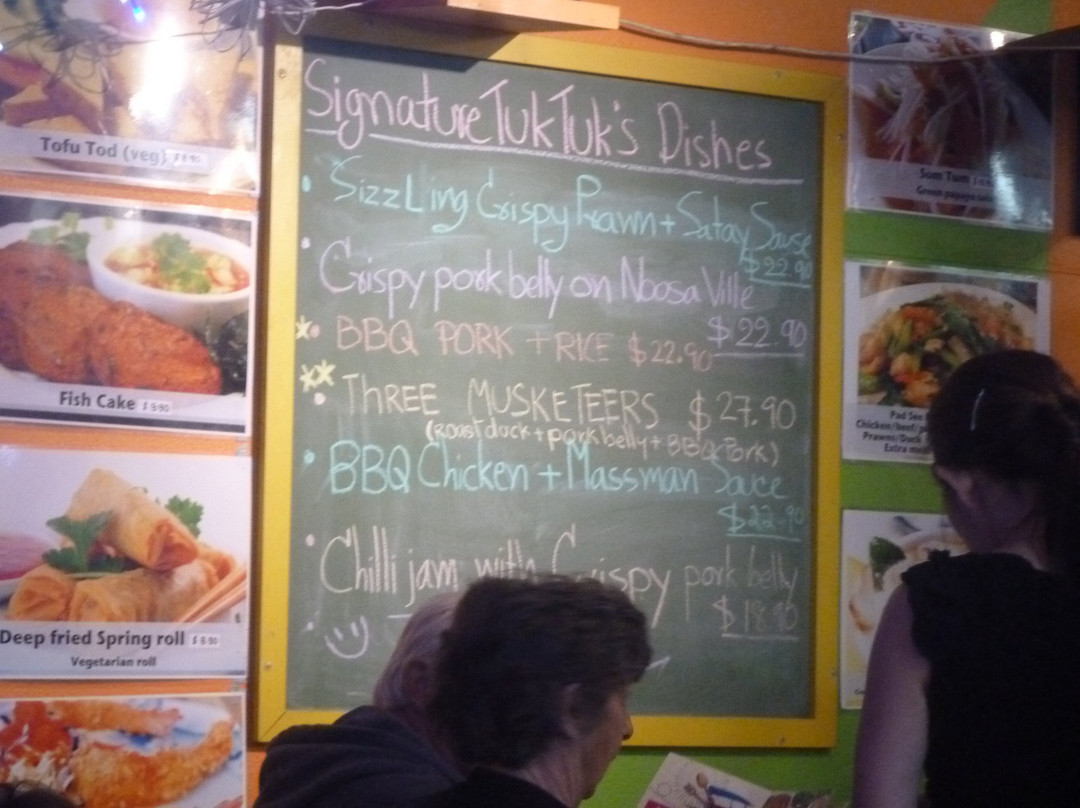 Signature TukTuk's Dishes
SizzLing Crispy Prawn + Satay Sause
$22.90
Crispy pork belly on Noosa Ville
$22.90
BBQ PORK + RICE $22.90
THREE MUSKETEERS $27.90
(Roast duck + pork belly + BBQ Pork)
BBQ Chicken + Massman Sauce
$22.90
Chilli jam with Crispy pork belly
$18.90
Tofu Tod (veg) $8.90
Fish Cake $9.90
Deep fried Spring roll $8.90
Vegetarian roll
Som Tum
Green papaya
Pad See
Chicken/beef/
Prawns/Duck
Extra